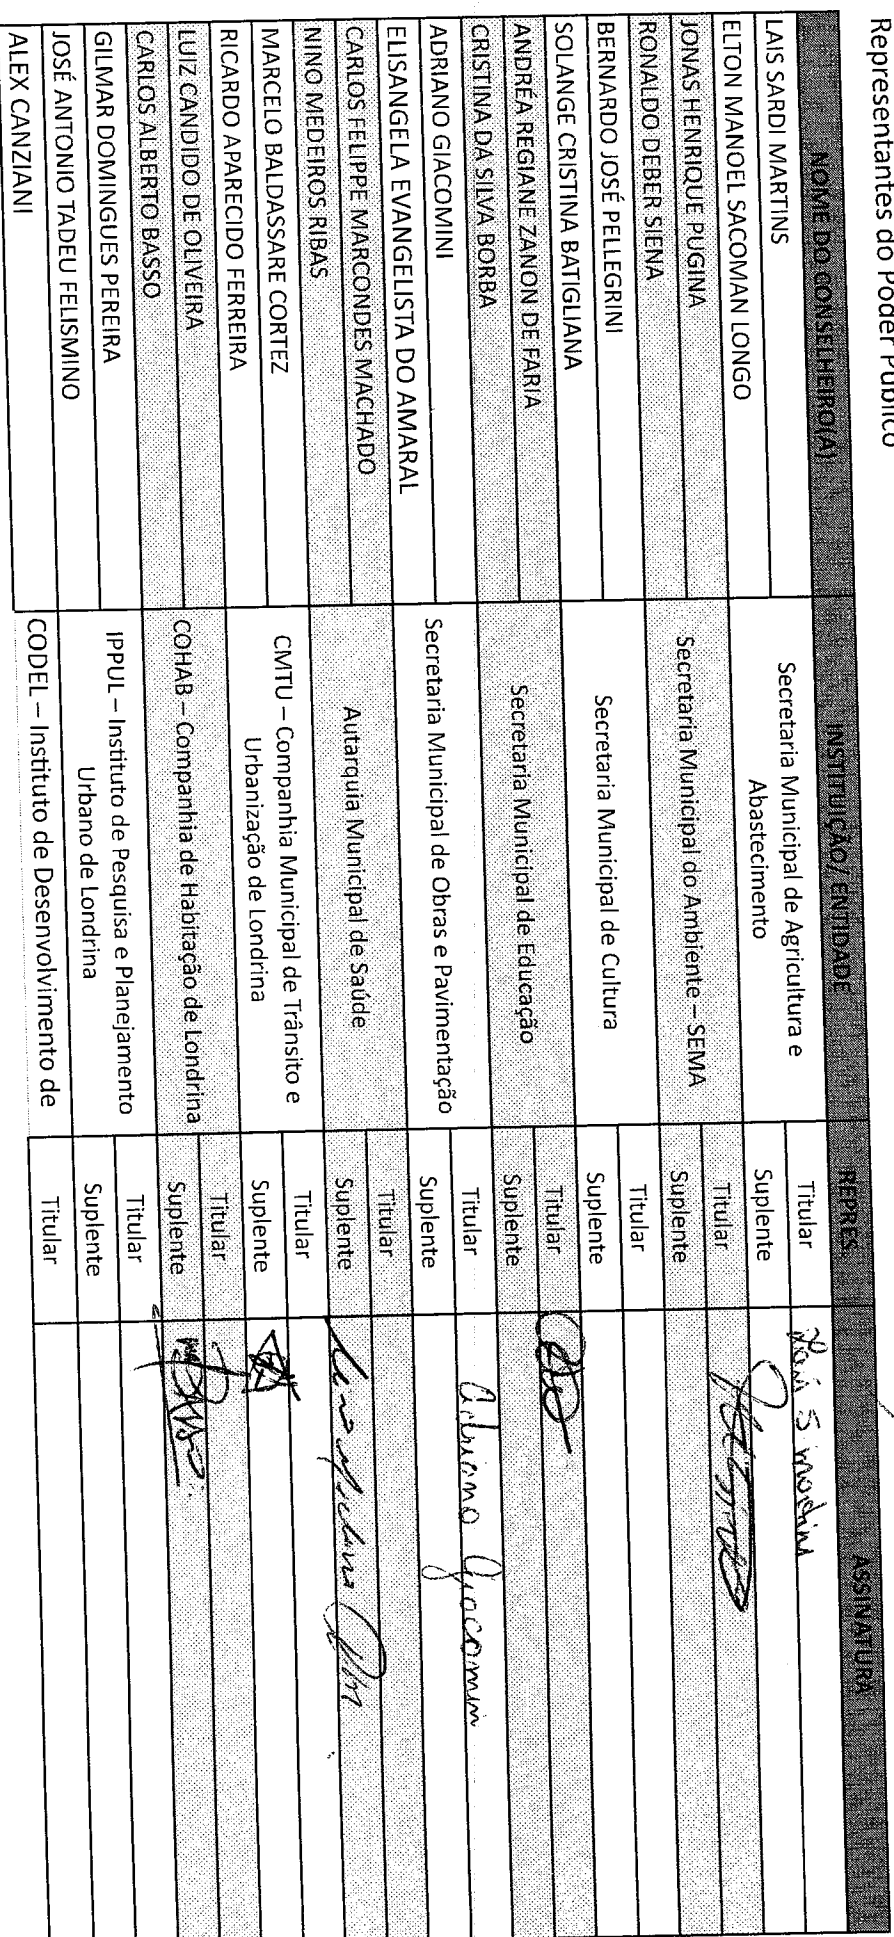 Representantes do Poder Público
NOME DO CONSELHEIRO(A) INSTITUIÇÃO/ ENTIDADE REPRES. ASSINATURA
LAIS SARDI MARTINS Secretaria Municipal de Agricultura e Abastecimento Titular Lais S Martins
ELTON MANOEL SACOMAN LONGO Suplente
JONAS HENRIQUE PUGINA Secretaria Municipal do Ambiente – SEMA Titular
RONALDO DEBER SIENA Suplente
BERNARDO JOSÉ PELLEGRINI Secretaria Municipal de Cultura Titular
SOLANGE CRISTINA BATIGLIANA Suplente
ANDRÉA REGIANE ZANON DE FARIA Secretaria Municipal de Educação Titular
CRISTINA DA SILVA BORBA Suplente
ADRIANO GIACOMINI Secretaria Municipal de Obras e Pavimentação Titular Adriano Giacomin
ELISANGELA EVANGELISTA DO AMARAL Suplente
CARLOS FELIPPE MARCONDES MACHADO Autarquia Municipal de Saúde Titular
NINO MEDEIROS RIBAS Suplente
MARCELO BALDASSARE CORTEZ CMTU – Companhia Municipal de Trânsito e Urbanização de Londrina Titular
RICARDO APARECIDO FERREIRA Suplente
LUIZ CANDIDO DE OLIVEIRA COHAB – Companhia de Habitação de Londrina Titular
CARLOS ALBERTO BASSO Suplente
GILMAR DOMINGUES PEREIRA IPPUL – Instituto de Pesquisa e Planejamento Urbano de Londrina Titular
JOSÉ ANTONIO TADEU FELISMINO Suplente
ALEX CANZIANI CODEL – Instituto de Desenvolvimento de Titular